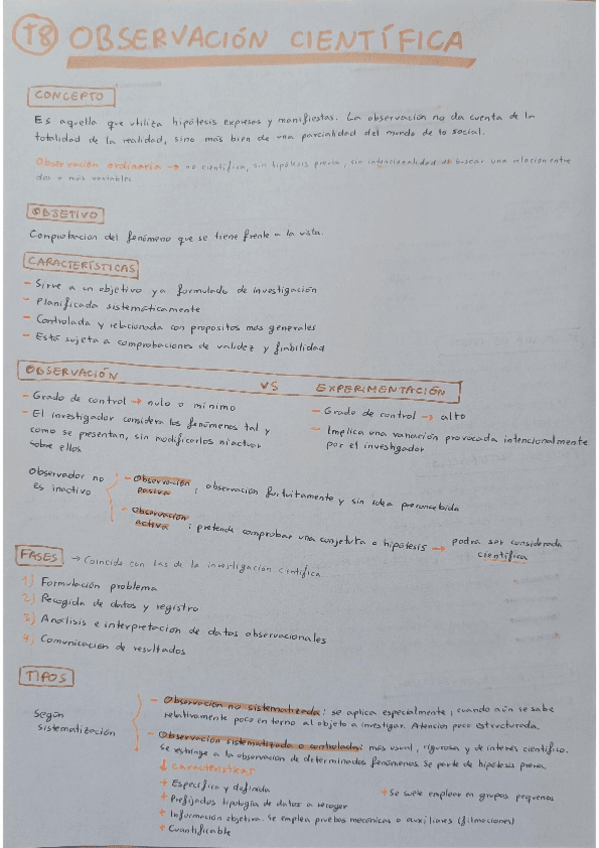 T8 OBSERVACIÓN CIENTÍFICA
CONCEPTO
Es aquella que utiliza hipótesis expresas y manifiestas. La observación no da cuenta de la
totalidad de la realidad, sino más bien de una parcialidad del mundo de lo social.
Observación ordinaria → no científica, sin hipótesis previa, sin intencionalidad de buscar una relación entre
dos o más variables
OBJETIVO
Comprobación del fenómeno que se tiene frente a la vista.
CARACTERÍSTICAS
- Sirve a un objetivo ya formulado de investigación
- Planificada sistemáticamente
- Controlada y relacionada con propositos más generales
- Está sujeta a comprobaciones de validez y fiabilidad
OBSERVACIÓN VS EXPERIMENTACIÓN
- Grado de control → nulo o mínimo
- El investigador considera los fenómenos tal y
como se presentan, sin modificarlos ni actuar
sobre ellos
- Grado de control → alto
- Implica una variación provocada intencionalmente
por el investigador
Observador no
es inactivo
- Observación
pasiva : observación fortuitamente y sin idea preconcebida
- Observación
activa : pretende comprobar una conjetura o hipótesis → podrá ser considerada
científica
FASES → Coincide con las de la investigación científica
1) Formulación problema
2) Recogida de datos y registro
3) Análisis e interpretación de datos observacionales
4) Comunicación de resultados
TIPOS
Según
sistematización
- Observación no sistematizada: se aplica especialmente, cuando aún se sabe
relativamente poco en torno al objeto a investigar. Atención poco estructurada.
- Observación sistematizada o controlada: más usual, rigurosa y de interés científico.
Se restringe a la observación de determinados fenómenos. Se parte de hipótesis previa.
↓ Características
+ Específica y definida
+ Prefijados tipología de datos a recoger
+ Información objetiva. Se emplea pruebas mecánicas o auxiliares (filmaciones)
+ Cuantificable
+ Se suele emplear en grupos pequeños